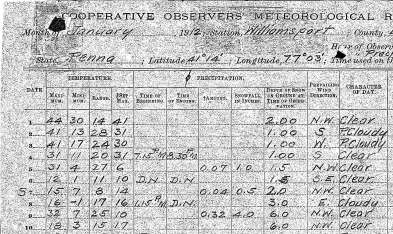 COOPERATIVE OBSERVERS' METEOROLOGICAL R
Month of January 1912; Station, Williamsport County,
Hour of Observ
State, Penna; Latitude 41°14'; Longitude, 77°03'; Time used on th
TEMPERATURE. PRECIPITATION.
DATE MAXI-MUM. MINI-MUM. RANGE. SET MAX. TIME OF BEGINNING. TIME OF ENDING. AMOUNT. SNOWFALL IN INCHES. DEPTH OF SNOW ON GROUND AT TIME OF OBSERVATION PREVAILING WIND DIRECTION. CHARACTER OF DAY.
1 44 30 14 41 2.00 N.W. Clear
2 41 13 28 31 1.00 S P.Cloudy
3 41 17 24 30 1.00 W. P.Cloudy
4 31 11 20 31 7.15 PM 8.30 PM 1.00 S Clear
5 31 4 27 6 0.07 1.0 1.5 N.W. Clear
6 12 1 11 10 D.N. D.N. S.E. Clear
S 7 15 7 8 14 0.04 0.5 2.0 N.W. Clear
8 16 -1 17 16 1.15 PM D.N. 3.0 E. Cloudy
9 32 7 25 10 0.32 4.0 6.0 N.W. Clear
10 18 3 15 17 6.0 N.W. Clear